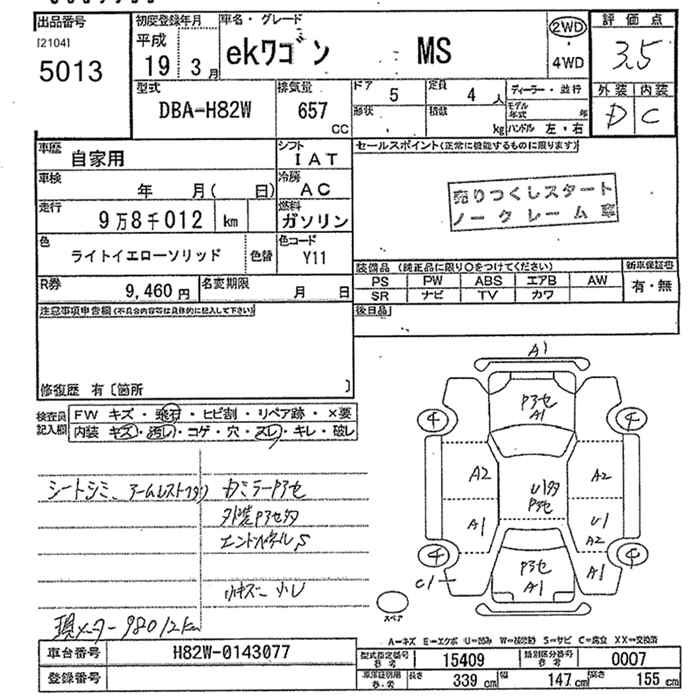 出品番号 初度登録年月 車名・グレード 評価点
[2104] 平成 ekワゴン MS 2WD ・ 4WD 3.5
5013 19 3月
型式 排気量 ドア 定員 ディーラー・並行 外装 内装
DBA-H82W 657 cc 5 4人 モデル年式 年 D C
形状 積載 kg ハンドル 左・右
車歴 自家用 シフト IAT セールスポイント(正常に機能するものに限ります)
車検 年 月( 日) 冷房 AC 売りつくしスタート
走行 9万8千012 km 燃料 ガソリン ノークレーム
色 ライトイエローソリッド 色替 色コード Y11
装備品 (純正品に限り○をつけてください) 新車保証書
R券 9,460円 名変期限 月 日 PS PW ABS エアB AW 有・無
SR ナビ TV カワ
注意事項申告欄(不具合内容等は具体的に記入して下さい) 後日品
修復歴 有〔箇所 〕
検査員記入欄 FW キズ・飛石・ヒビ割・リペア跡・×要
内装 キズ・汚レ・コゲ・穴・スレ・キレ・破レ
A1
PアセA1
4 4
A2 U1 A2
A1 U1 A2
4 4
C1 PアセA1 A1
シートシミ、アームレスト カミラーPアセ
外装Pアセ
エンドパネルS
小キズ 小レ
スペア
現メーター98012km
A=キズ E=エクボ U=凹み W=補修跡 S=サビ C=腐食 XX=交換済
車台番号 H82W-0143077 型式指定番号 15409 類別区分番号 0007
登録番号 長さ 339cm 幅 147cm 高さ 155cm